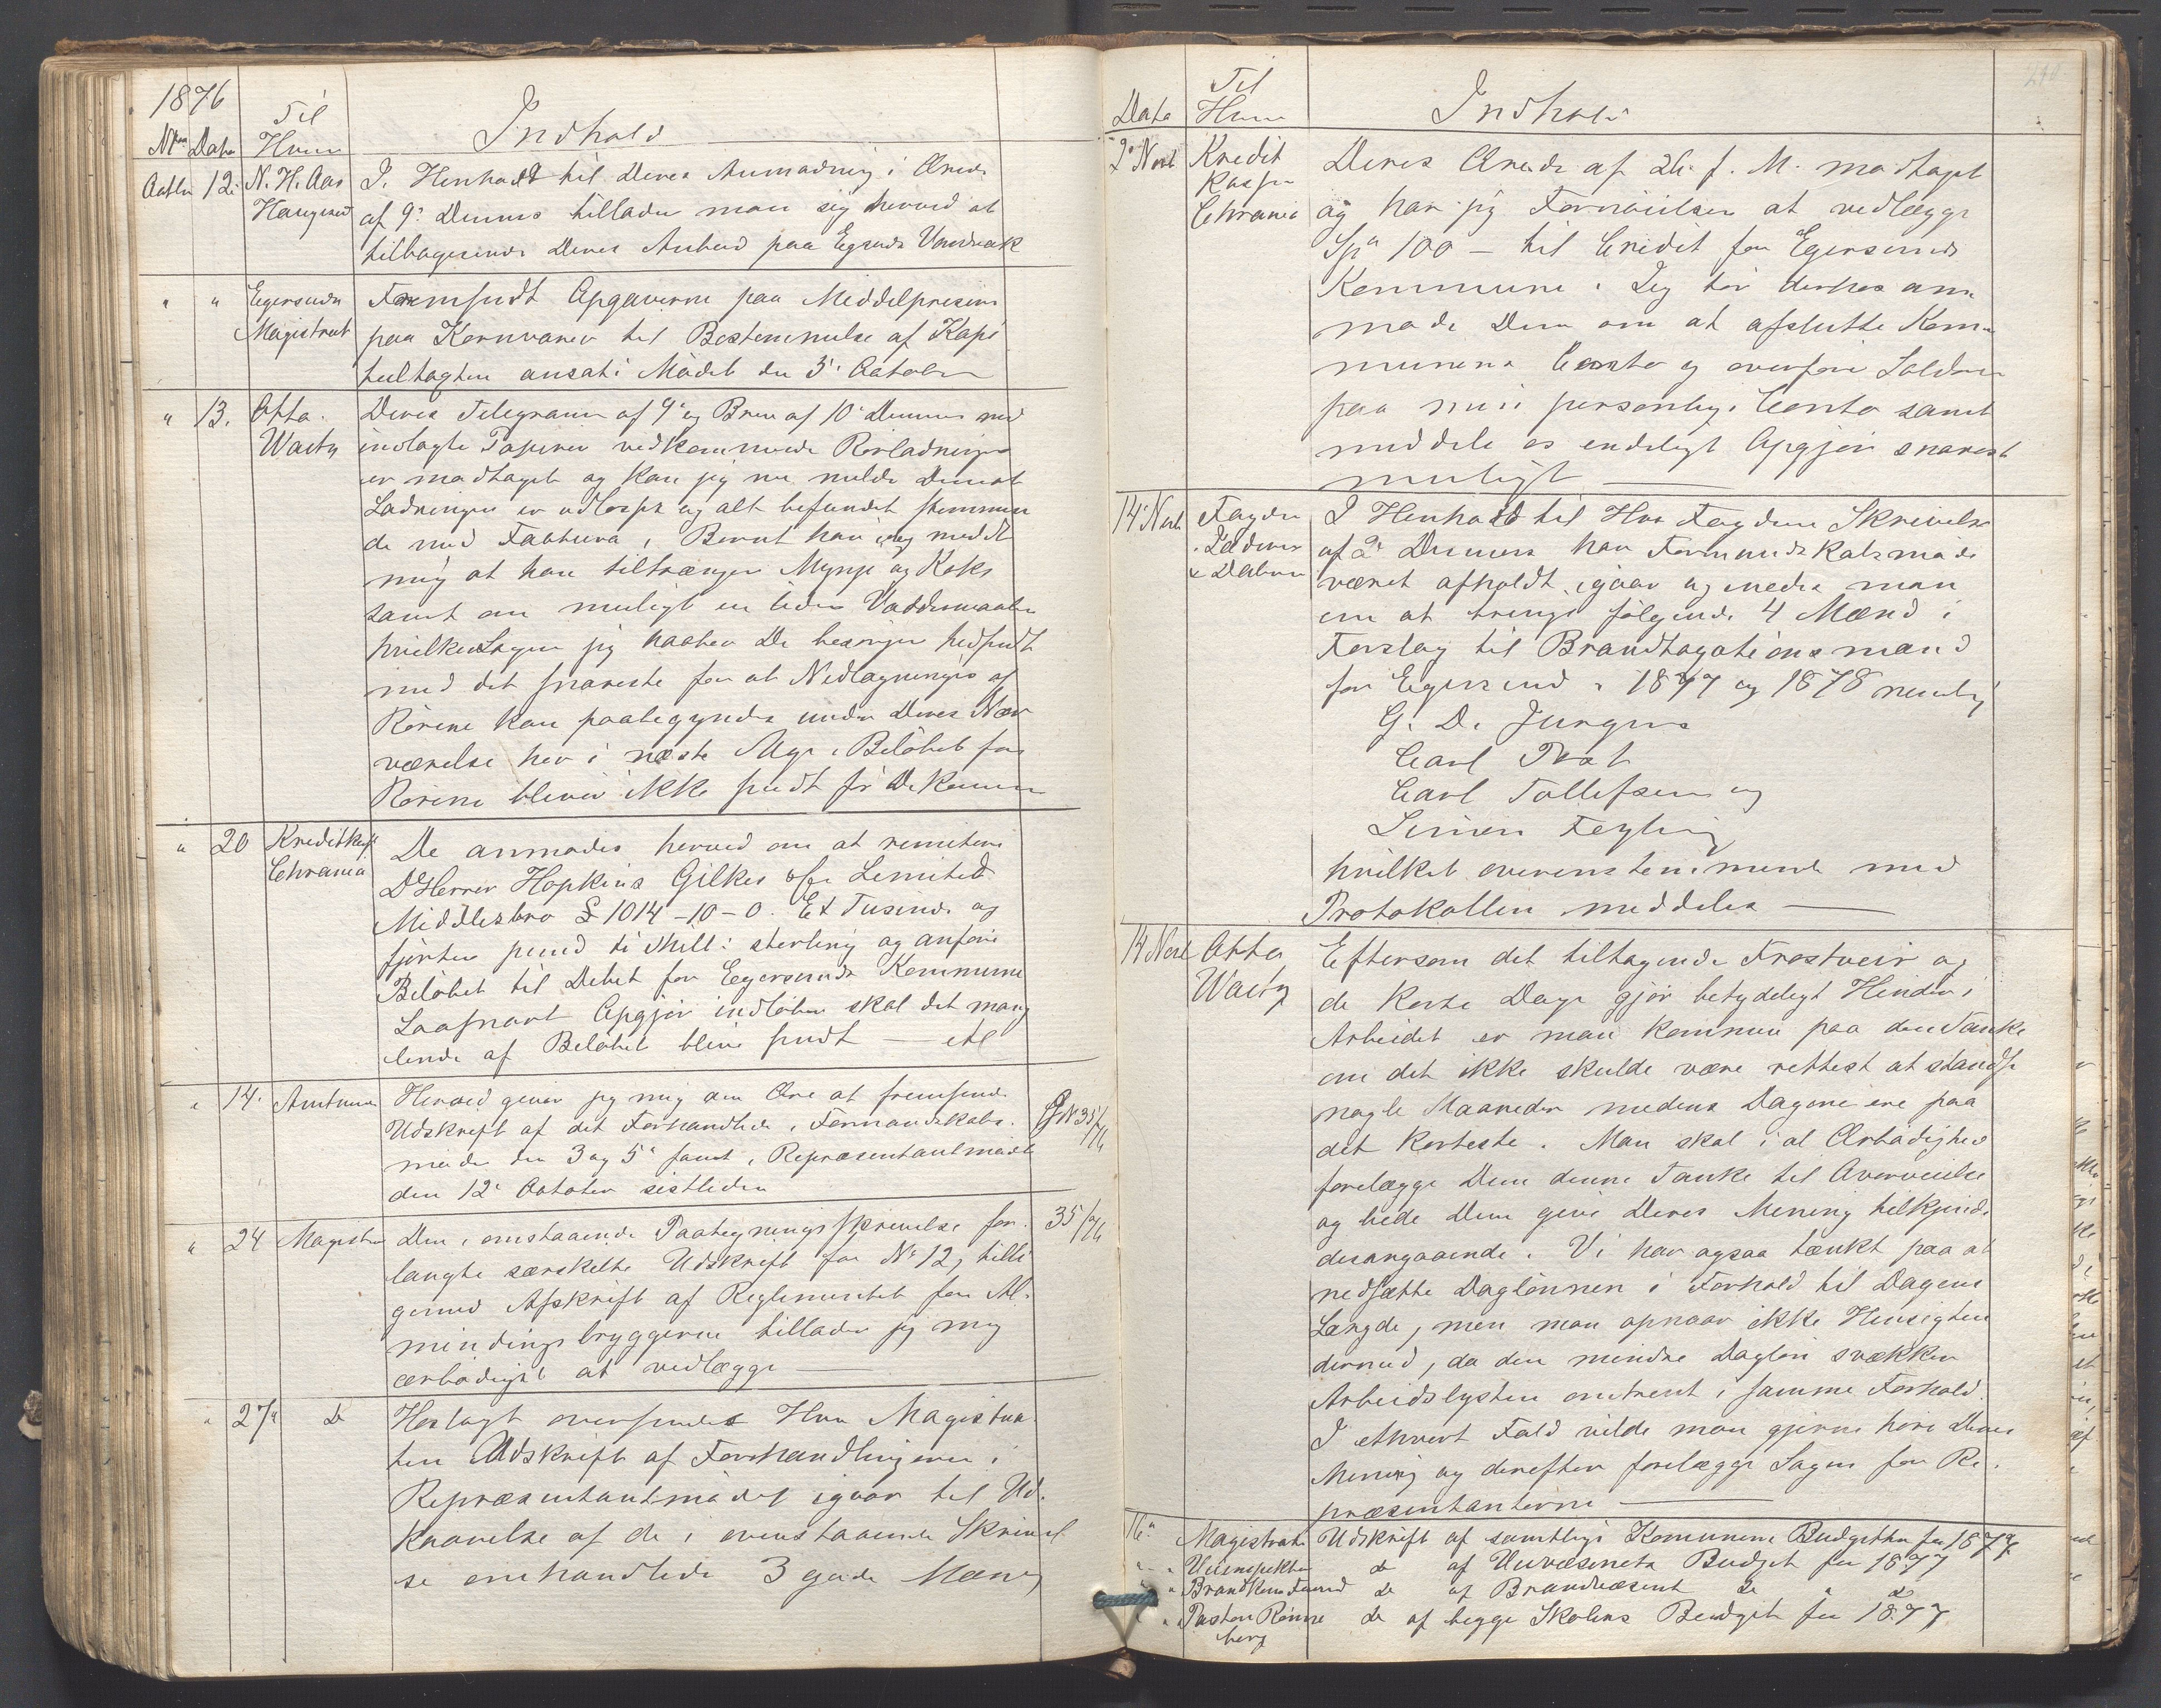 1876
Nr. Dato Til Hvem Indhold
Octbr 12. N. H. Aas Haugesund
I Henhold til Deres Anmodning i Ærede
af 9. Dennes tillader man sig herved at
tilbagesende Deres Anbud paa Egersunds Vandværk
" " Egersunds Magistrat
Fremsendt Opgaverne paa Middelpriserne
paa Kornvarer til Bestemmelse af Kapi
teltagten ansat i Mødet den 5. October
" 13. Otto Waitz
Deres Telegram af 9. og Brev af 10. Dennes med
indlagte Papirer vedkommende Rørladningen
er modtaget og kan jeg nu melde Dem at
Ladningen er udlosset og alt befundet stemmen
de med Factura, Bernt har idag meddt
mig at han tiltrænger Mynje og Koks
samt om muligt en liden
hvilke Sager jeg haaber De besørger hidsendt
med det snareste for at Nedlægningen af
Rørene kan paabegyndes under Deres Nær
værelse her i næste Uge. Beløbet for
Rørene bliver ikke sendt før De kommer
" 20 Kreditkass Chrania
De anmodes herved om at remitere
D'Herrer Hopkins Gilkes & Co Limited
Middlesbro £ 1014-10-0. Et Tusinde og
fjorten pund ti shill: sterling og anføre
Beløbet til Debet for Egersunds Kommune
Saasnart Opgjør indløber skal det mang
lende af Beløbet blive sendt —
" 14. Amtmand
Herved giver jeg mig den Ære at fremsende
Udskrift af det Forhandlede i Formandskabs-
møder den 3 og 5. samt i Repræsentantmødet
den 12. October sistleden
JN 35/76
" 24 Magistraten
Den i omstaaende Paategningsskrivelse for-
langte særskilte Udskrift for No 12, tilli
gemed Afskrift af Reglementet for Al-
mindingsbryggerne tillader jeg mig
ærbødigst at vedlægge —
35/76
" 27" Do
Hoslagt oversendes Hrr Magistra-
ten Udskrift af Forhandlingerne i
Repræsentantmødet igaar til Ud-
kaarelse af de i ovenstaaende Skrivel
se omhandlede 3 gode Mænd
Dato Til Hvem Indhold
2. Novb Kredit Kassen Chrania
Deres Ærede af 26. f. M. modtaget
og har jeg Fornøielsen at vedlægge
Spd 100 – til Credit for Egersunds
Kommune. Jeg tør derhos an-
mode Dem om at afslutte Kom-
munens Conto og overføre Saldoen
paa min personlige Conto samt
meddele os endeligt Opgjør snarest
muligt —
14. Novb Fogden i Jæderen & Dalerne
I Henhold til Hrr Fogdens Skrivelse
af 2. Dennes har Formandskabsmøde
været afholdt igaar og
om at bringe følgende 4 Mænd i
Forslag til Brandtaxationsmænd
for Egersund i 1877 og 1878 nemlig
G. D. Jurgens
Carl Prat
Carl Tollefsen og
Simon Feyling
hvilket overensstemmende med
Protokollen meddeles —
14 Novb Otto Waitz
Eftersom det tiltagende Frostveir og
de korte Dage gjør betydeligt Hinder i
Arbeidet er man kommen paa den Tanke
om det ikke skulde være rettest at standse
nogle Maaneder medens Dagene ere paa
det korteste. Man skal i al Ærbødighed
forelægge Dem denne Tanke til Overveielse
og bede Dem give Deres Mening tilkjende
desangaaende. Vi har ogsaa tænkt paa at
nedsætte Daglønnen i Forhold til Dagens
Længde, men man opnaar ikke Hensigten
dermed, da den mindre Dagløn svækker
Arbeidslysten omtrent i samme Forhold.
I ethvert Fald vilde man gjerne høre Deres
Mening og derefter forelægge Sagen for Re-
præsentanterne —
16" Magistrate Udskrift af samtlige Komunens Budgetter for 1877
" " Veiinspekten do af Veivæsenets Budget for 1877
" " Brandkom Formd do af Brandvæsent do " do
" " Pastor Rønne do af begge Skolers Budget for 1877
berg